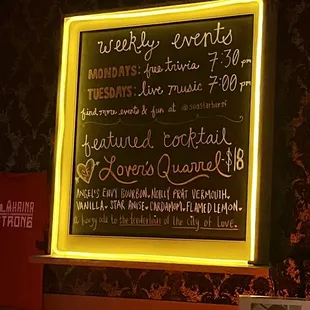 weekly events
MONDAYS: free trivia 7:30 pm
TUESDAYS: live music 7:00 pm
find more events & fun at
featured cocktail
Lover's Quarrel $18
ANGEL'S ENVY BOURBON. NOILLY PRAT VERMOUTH.
VANILLA. STAR ANISE. CARDAMOM. FLAMED LEMON.
a boozy ode to the tenderloin of the City of Love.
LAHAINA
STRONG